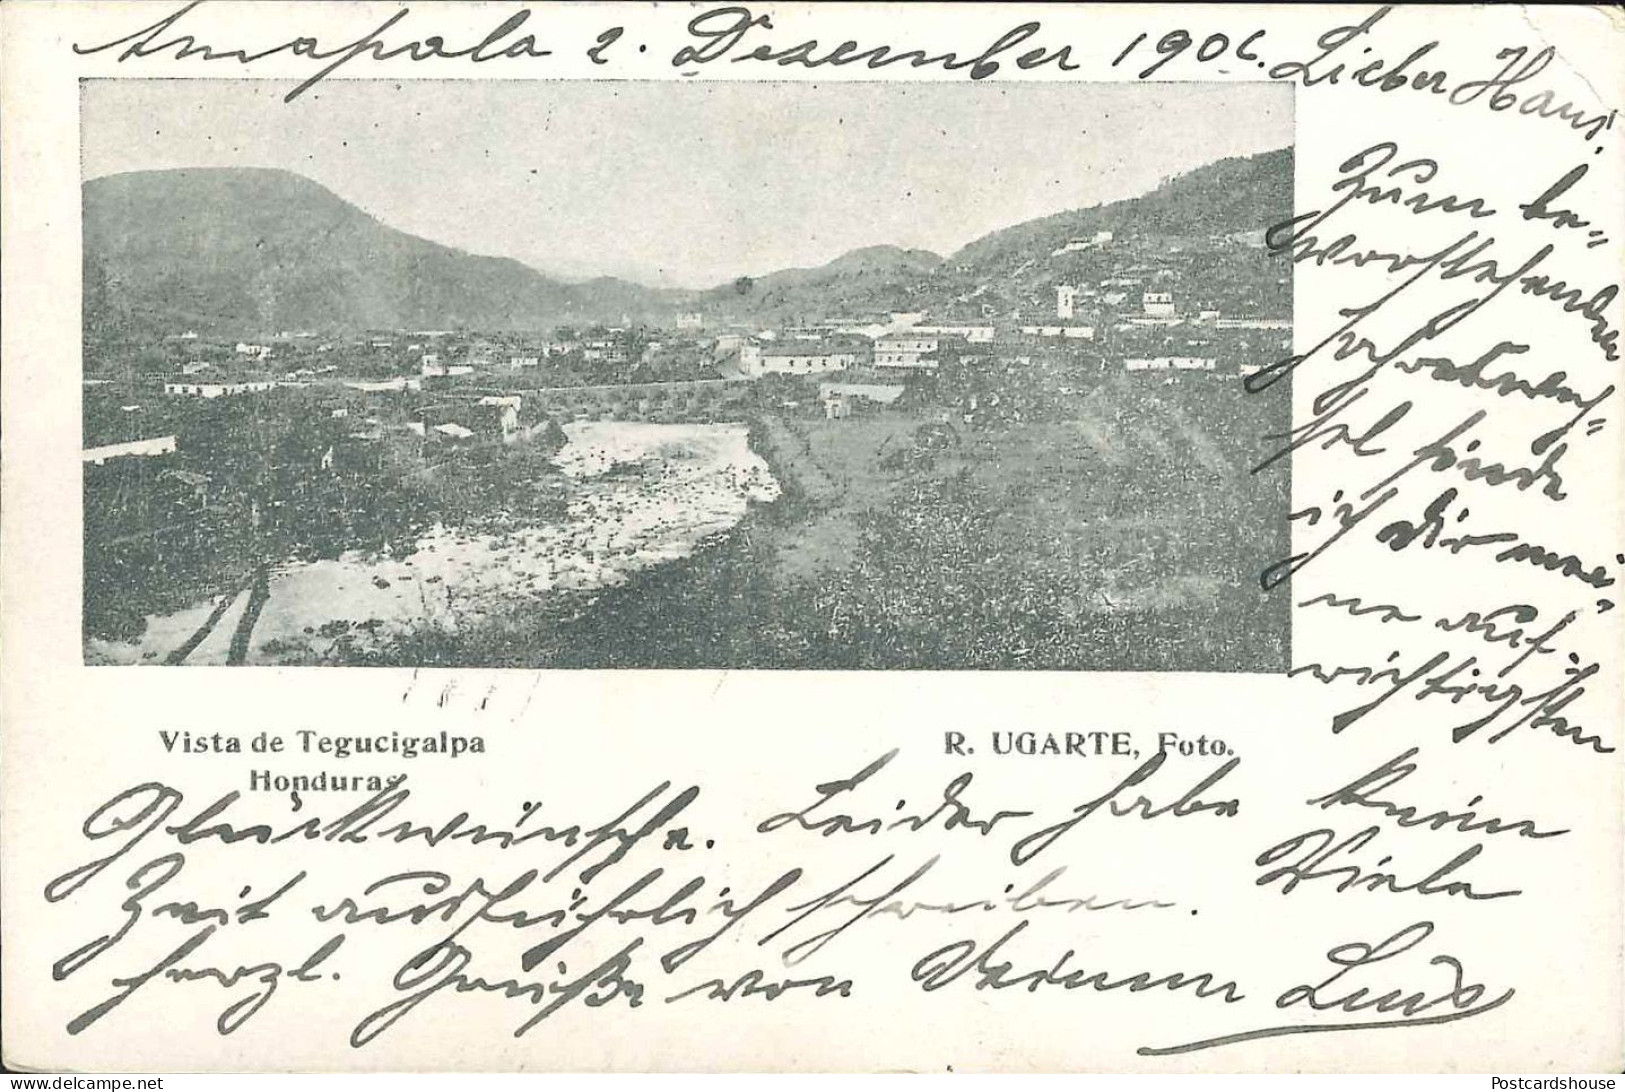 Amapala 2. Dezember 1906. Lieber Hans!
Zum be-
vorstehenden
Jahreswech-
sel sende
ich Dir mei-
ne auf-
richtigsten
Vista de Tegucigalpa
Honduras
R. UGARTE, Foto.
Glückwünsche. Leider habe keine
Zeit ausführlich schreiben. Viele
herzl. Grüße von Deinem
delcampe.net
Postcardshouse